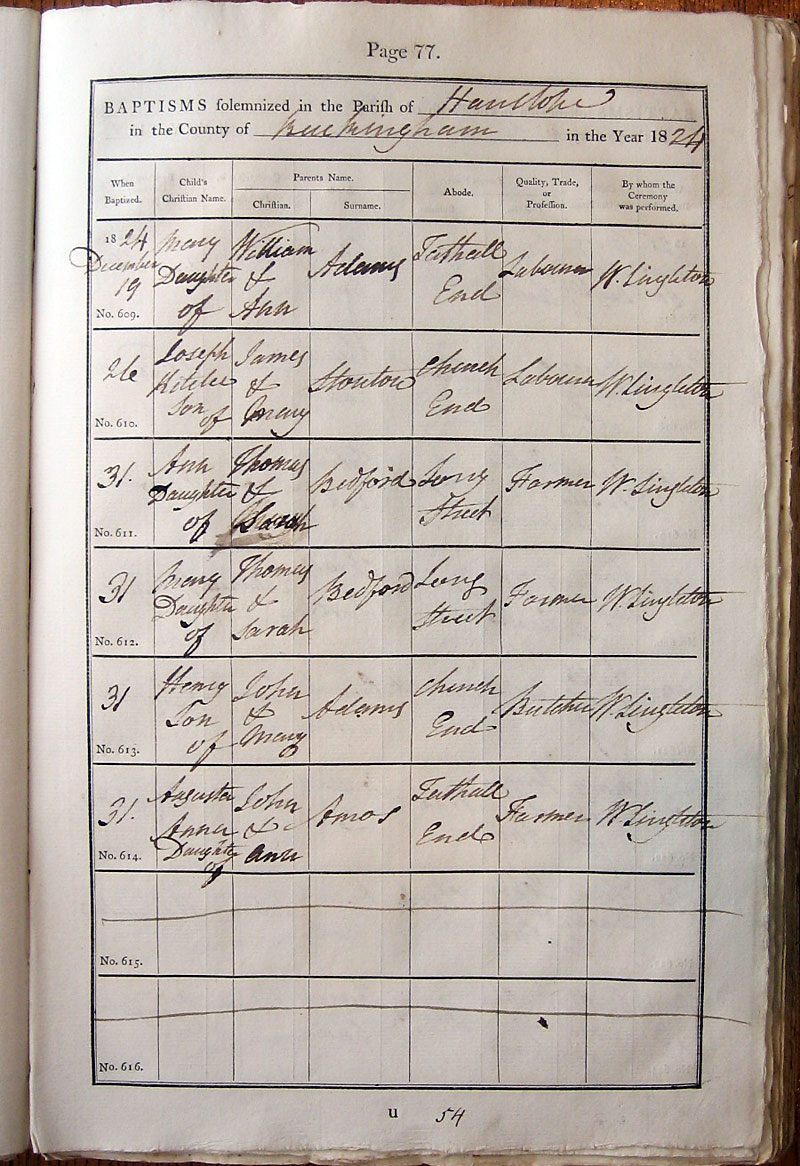 Page 77.
BAPTISMS solemnized in the Parish of Hanslope
in the County of Buckingham in the Year 1824
When Baptized. Child's Christian Name. Parents Name. Christian. Surname. Abode. Quality, Trade, or Profession. By whom the Ceremony was performed.
1824 Mary William Adams Tathall Labourer W. Singleton
December Daughter & End
19 of Ann
No. 609.
26 Joseph James Stonton Church Labourer W. Singleton
& End
Son of Mary
No. 610.
31. Ann Thomas Bedford Long Farmer W. Singleton
Daughter & Street
of Sarah
No. 611.
31 Mary Thomas Bedford Long Farmer W. Singleton
Daughter & Street
of Sarah
No. 612.
31 Henry John Adams Church Butcher W. Singleton
Son & End
of Mary
No. 613.
31. Augusta John Amos Tathall Farmer W. Singleton
Anna & End
Daughter Ann
of
No. 614.
No. 615.
No. 616.
u 54